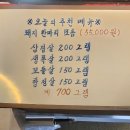 ※ 오늘의 추천 메뉴 ※
돼지 한마리 모듬 (55,000원)
삼겹살 200 그램
목살 200 그램
갈매기살 150 그램
항정살 150 그램
계 700 그램